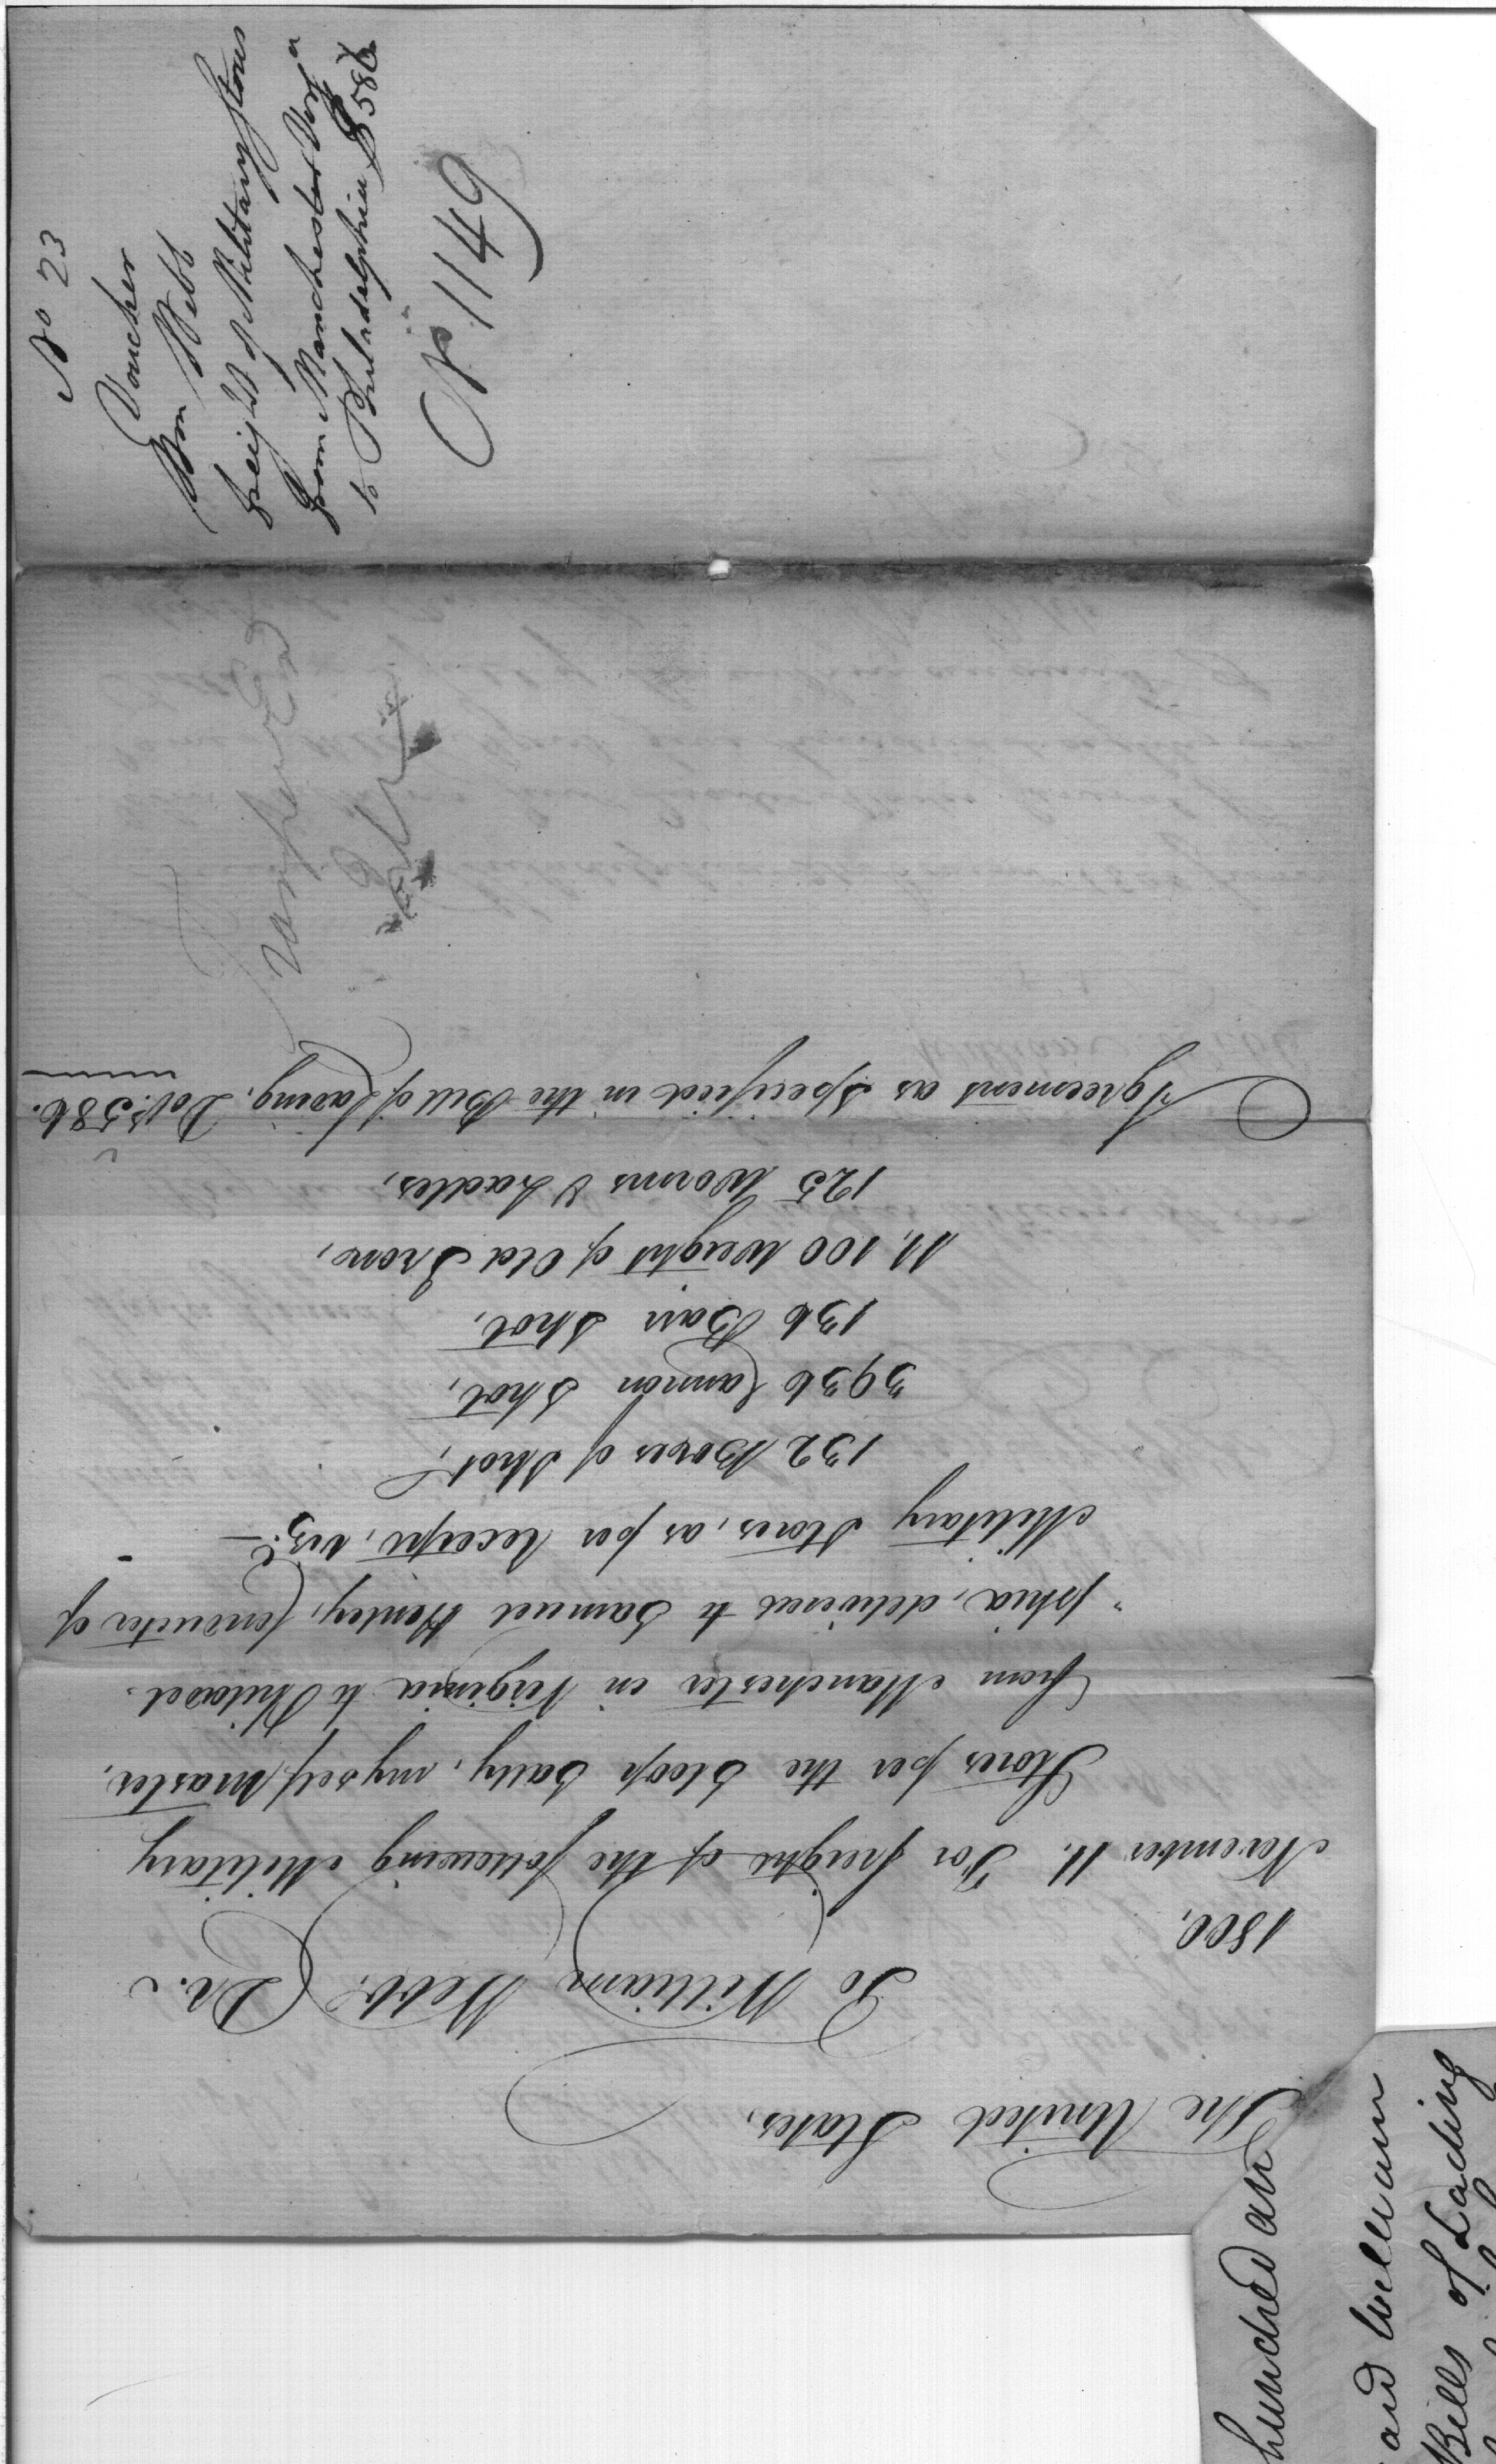 The United States,
To William Webb, Dr.
1800,
November 11. For freight of the following Military
Stores per the Sloop Sally, myself Master,
from Manchester in Virginia to Philadel-
"phia, delivered to Samuel Henley, Conductor of
Military Stores, as per receipt, viz.—
132 Boxes of Shot,
3936 Cannon Shot,
136 Barr Shot,
11,100 Weight of Old Iron,
125 Worms & Ladles,
Agreement as Specified in the Bill of Lading, Dol.s 586.
No 23
Voucher
Wm Webb
freight of Military Stores
from Manchester Virga
to Philadelphia $586
1149
hundred and
and William
Bills of Lading